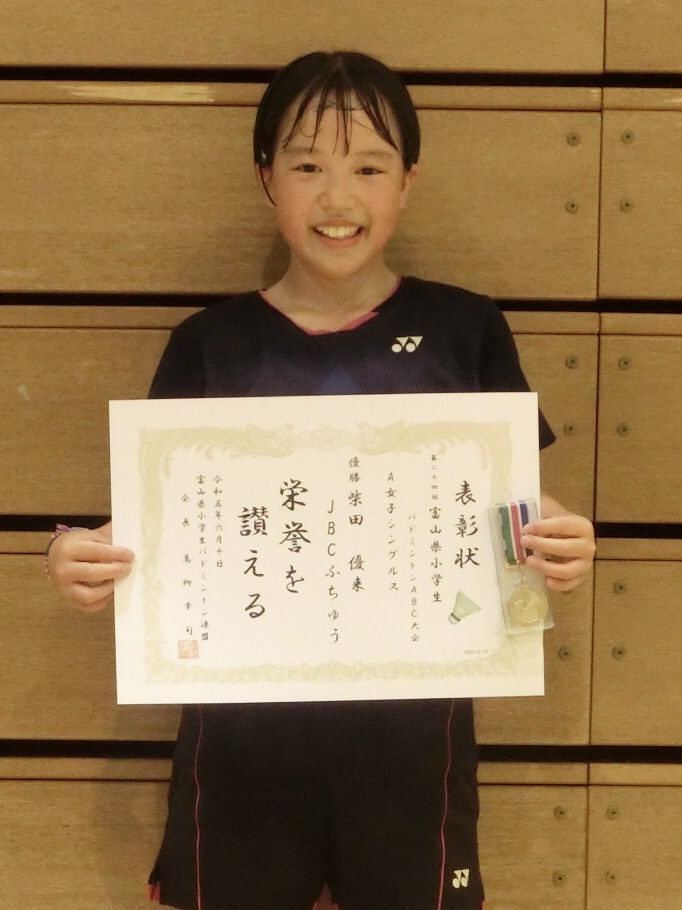 表彰状
第二十四回 富山県小学生
バドミントンABC大会
A女子シングルス
優勝 柴田 優来
JBCふちゅう
栄誉を
讃える
令和五年六月十日
富山県小学生バドミントン連盟
会長 高柳 幸司
2023.6.10